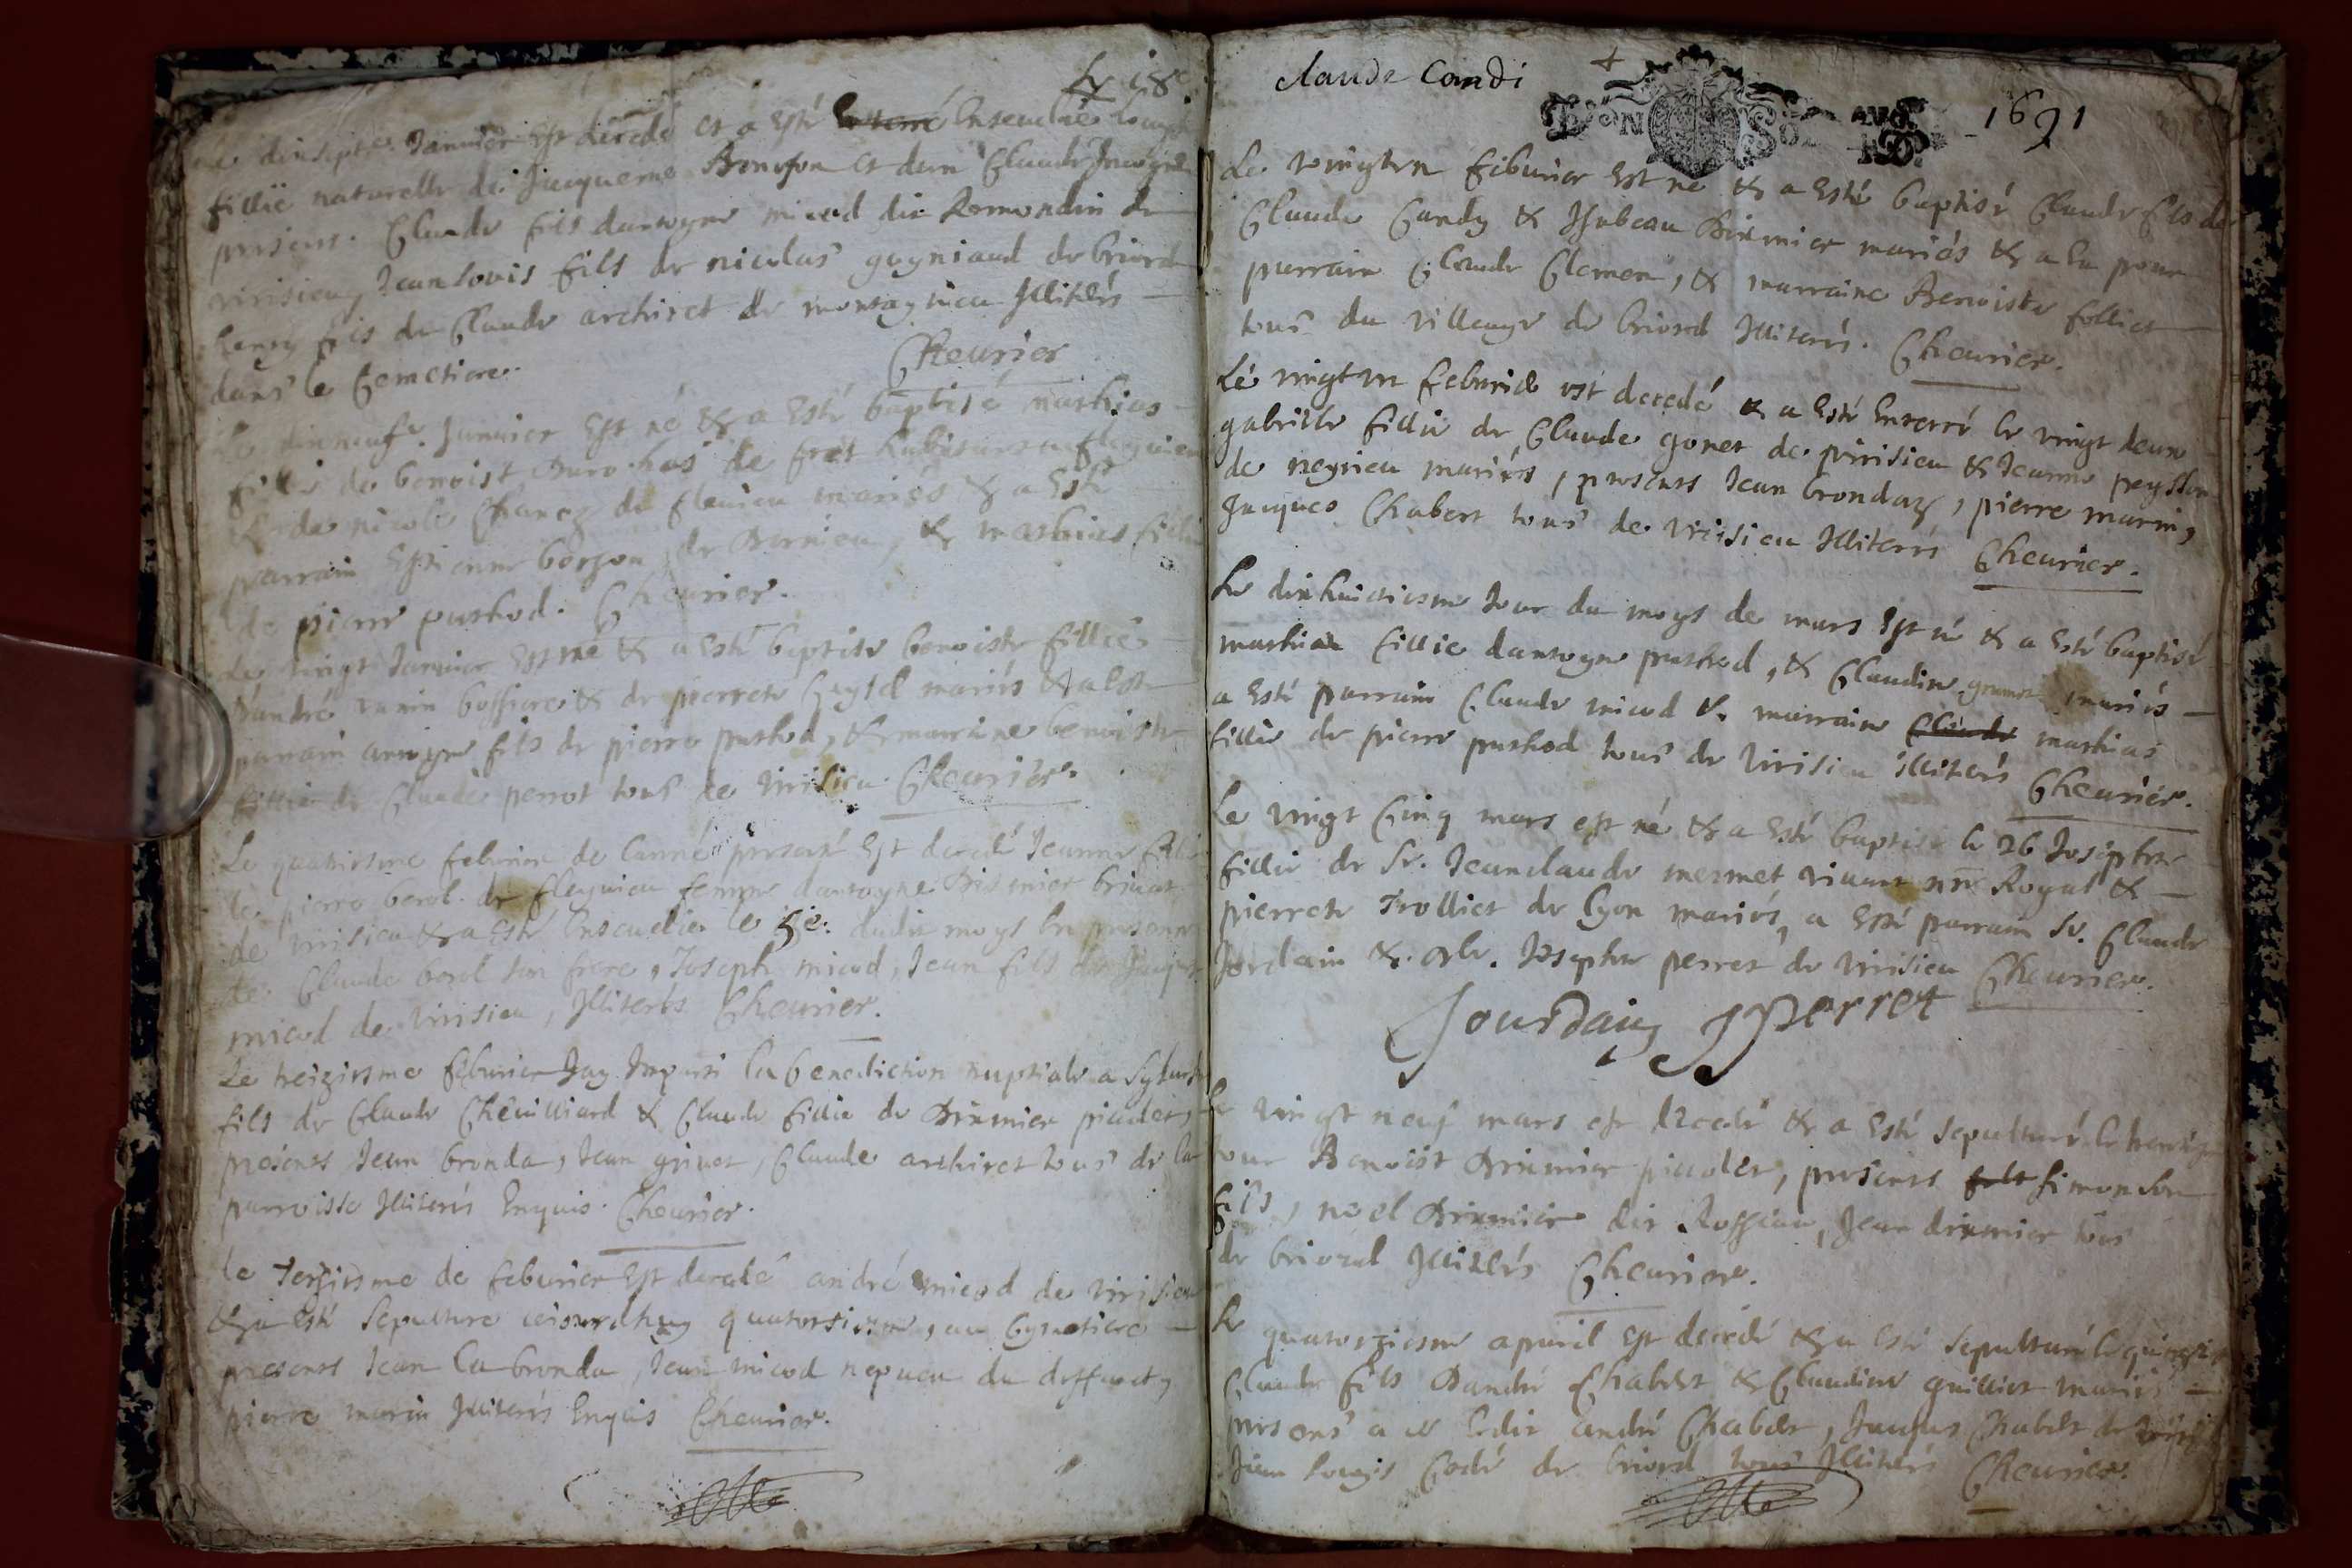 Le 18e
Le dixsepte. Januier Est decedé et a Esté Enterré Enseuelie Louyse
fillie naturelle de Jacqueme Bonison et dun Claude
presens. Claude fils dantoyne micod dit Remondin de
virisieu, Jean Louis fils de nicolas gagniaud de briord
fils de Claude archiret de montagnieu Illiterés
dans le Cemetiere.
Cheurier
Le dixneufe. Januier Est né & a Esté baptisé mathias
fillie de benoist de
& de nicole de fleuieu mariés & a Esté
parrain Estienne borson de Dornieu, & mathias fillie
de pierre puthod. Cheurier.
Le vingt Januier Est né & a Esté baptisé benoiste fillie
D'andré bossiere & de pierrete mariés & a Esté
parrain antoyne fils de pierre puthod, & marraine benoiste
fillie de Claude perrot tous de virisieu. Cheurier.
Le quatriesme feburier de l'anné present Est decedé Jeanne fillie
de pierre berol de fleyuieu femme dantoyne Driemier
de virisieu & a Esté Enseuelie le 5e. dudit moys En presence
de Claude berol son frere, Joseph micod, Jean fils de Jaques
micod de virisieu, Illiterés Cheurier.
Le treiziesme feburier Jay Imparti la benediction nuptiale a
fils de Claude Cheuilliard & Claude fillie de Driemier picolet,
presens Jean bronda, Jean grinet, Claude archiret tous de la
parroisse Illiterés Enquis. Cheurier.
le Terziesme de feburier Est decedé andré micod de virisieu
& a Esté sepulturé quatorsiesme, au Cymetiere
presens Jean la bronda, Jean micod nepueu du deffunct,
pierre marin Illiterés Enquis Cheurier.
claude Candi
1691
Le vingtun feburier Est né & a Esté baptisé Claude fils de
Claude Candy & Ysabeau Driemier mariés & a Eu pour
parrain Claude Clemen, & marraine Benoiste folliet
tous du village de briord Illiterés. Cheurier.
Le vingtun feburier est decedé & a Esté Enterré le vingt deux
gabrielle fillie de Claude gonet de virisieu & Jeanne peysson
de neyrieu mariés, presens Jean brondaz, pierre marin,
Jacques Chabert tous de virisieu Illiterés Cheurier.
Le dixhuictiesme Jour du moys de mars Est né & a Esté baptisé
mathias fillie dantoyne puthod, & Claudine mariés
a Esté parrain Claude micod & marraine Claude mathias
fillie de pierre puthod tous de virisieu illiterés Cheurier.
Le vingt Cinq mars est né & a Esté baptisé le 26 Josephte
fillie de Sr. Jeanclaude mermet viuant nre Royal &
pierrete Trolliet de lyon mariés, a Esté parrain Sr. Claude
Jordain & Josephte perret de virisieu Cheurier.
Jourdain J Perret
Le vingt neuf mars est decedé & a Esté sepulturé le
Jour Benoist Driemier picolet, presens fils simon son
fils, noel Driemier dit Rossiau, Jean driemier tous
de briord Illiterés Cheurier.
Le quatorziesme apuril Est decedé & a Esté sepulturé le
Claude fils D'andré Chabert & Claudine guilliet mariés
presens a ce ledit andré Chabert, Jacques Chabert de
Jean Louys Codé de briord tous Illiterés Cheurier.